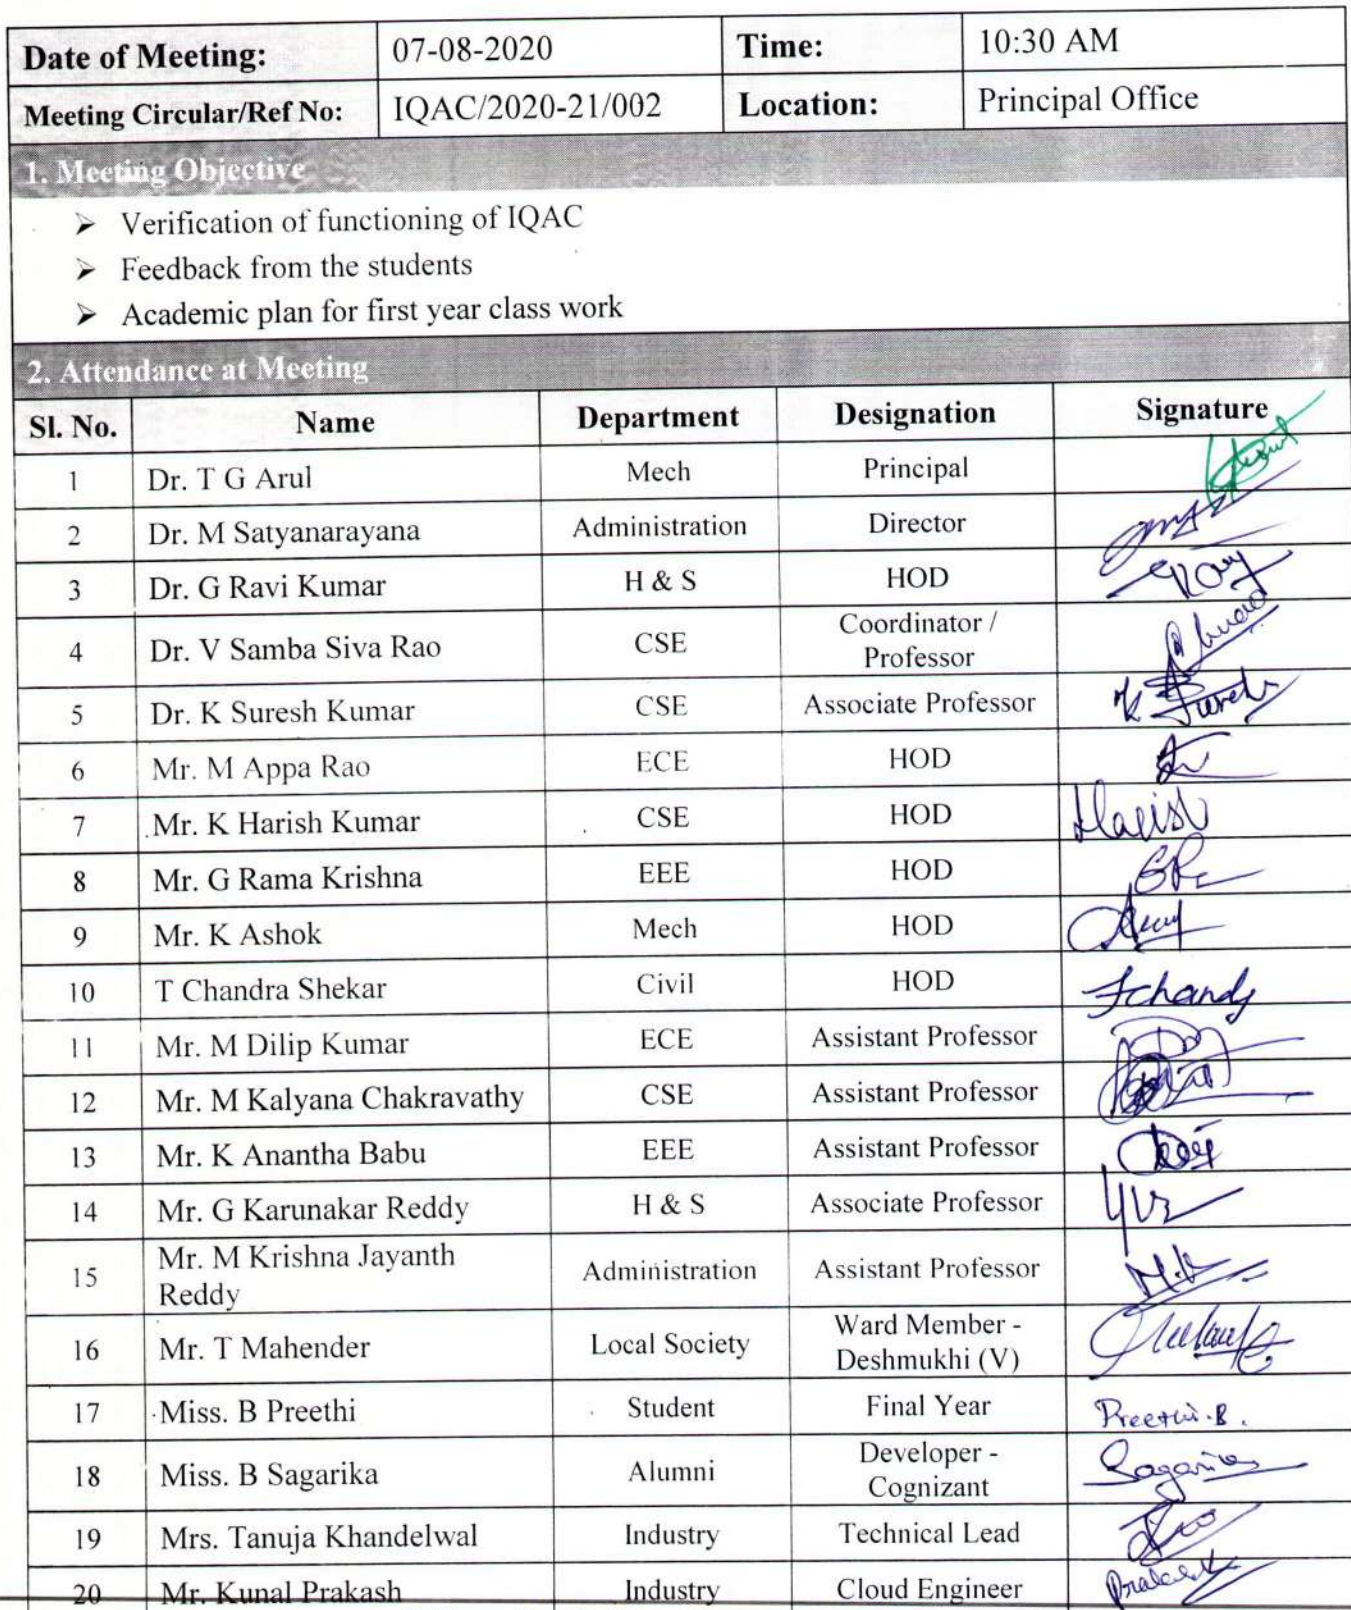 Date of Meeting: 07-08-2020 Time: 10:30 AM
Meeting Circular/Ref No: IQAC/2020-21/002 Location: Principal Office
1. Meeting Objective
➢ Verification of functioning of IQAC
➢ Feedback from the students
➢ Academic plan for first year class work
2. Attendance at Meeting
Sl. No. Name Department Designation Signature
1 Dr. T G Arul Mech Principal
2 Dr. M Satyanarayana Administration Director
3 Dr. G Ravi Kumar H & S HOD
4 Dr. V Samba Siva Rao CSE Coordinator /
Professor
5 Dr. K Suresh Kumar CSE Associate Professor K Suresh
6 Mr. M Appa Rao ECE HOD
7 Mr. K Harish Kumar CSE HOD Harish
8 Mr. G Rama Krishna EEE HOD
9 Mr. K Ashok Mech HOD
10 T Chandra Shekar Civil HOD
11 Mr. M Dilip Kumar ECE Assistant Professor
12 Mr. M Kalyana Chakravathy CSE Assistant Professor
13 Mr. K Anantha Babu EEE Assistant Professor
14 Mr. G Karunakar Reddy H & S Associate Professor
15 Mr. M Krishna Jayanth
Reddy Administration Assistant Professor
16 Mr. T Mahender Local Society Ward Member -
Deshmukhi (V)
17 Miss. B Preethi Student Final Year Preethi.B.
18 Miss. B Sagarika Alumni Developer -
Cognizant Sagarika
19 Mrs. Tanuja Khandelwal Industry Technical Lead
20 Mr. Kunal Prakash Industry Cloud Engineer